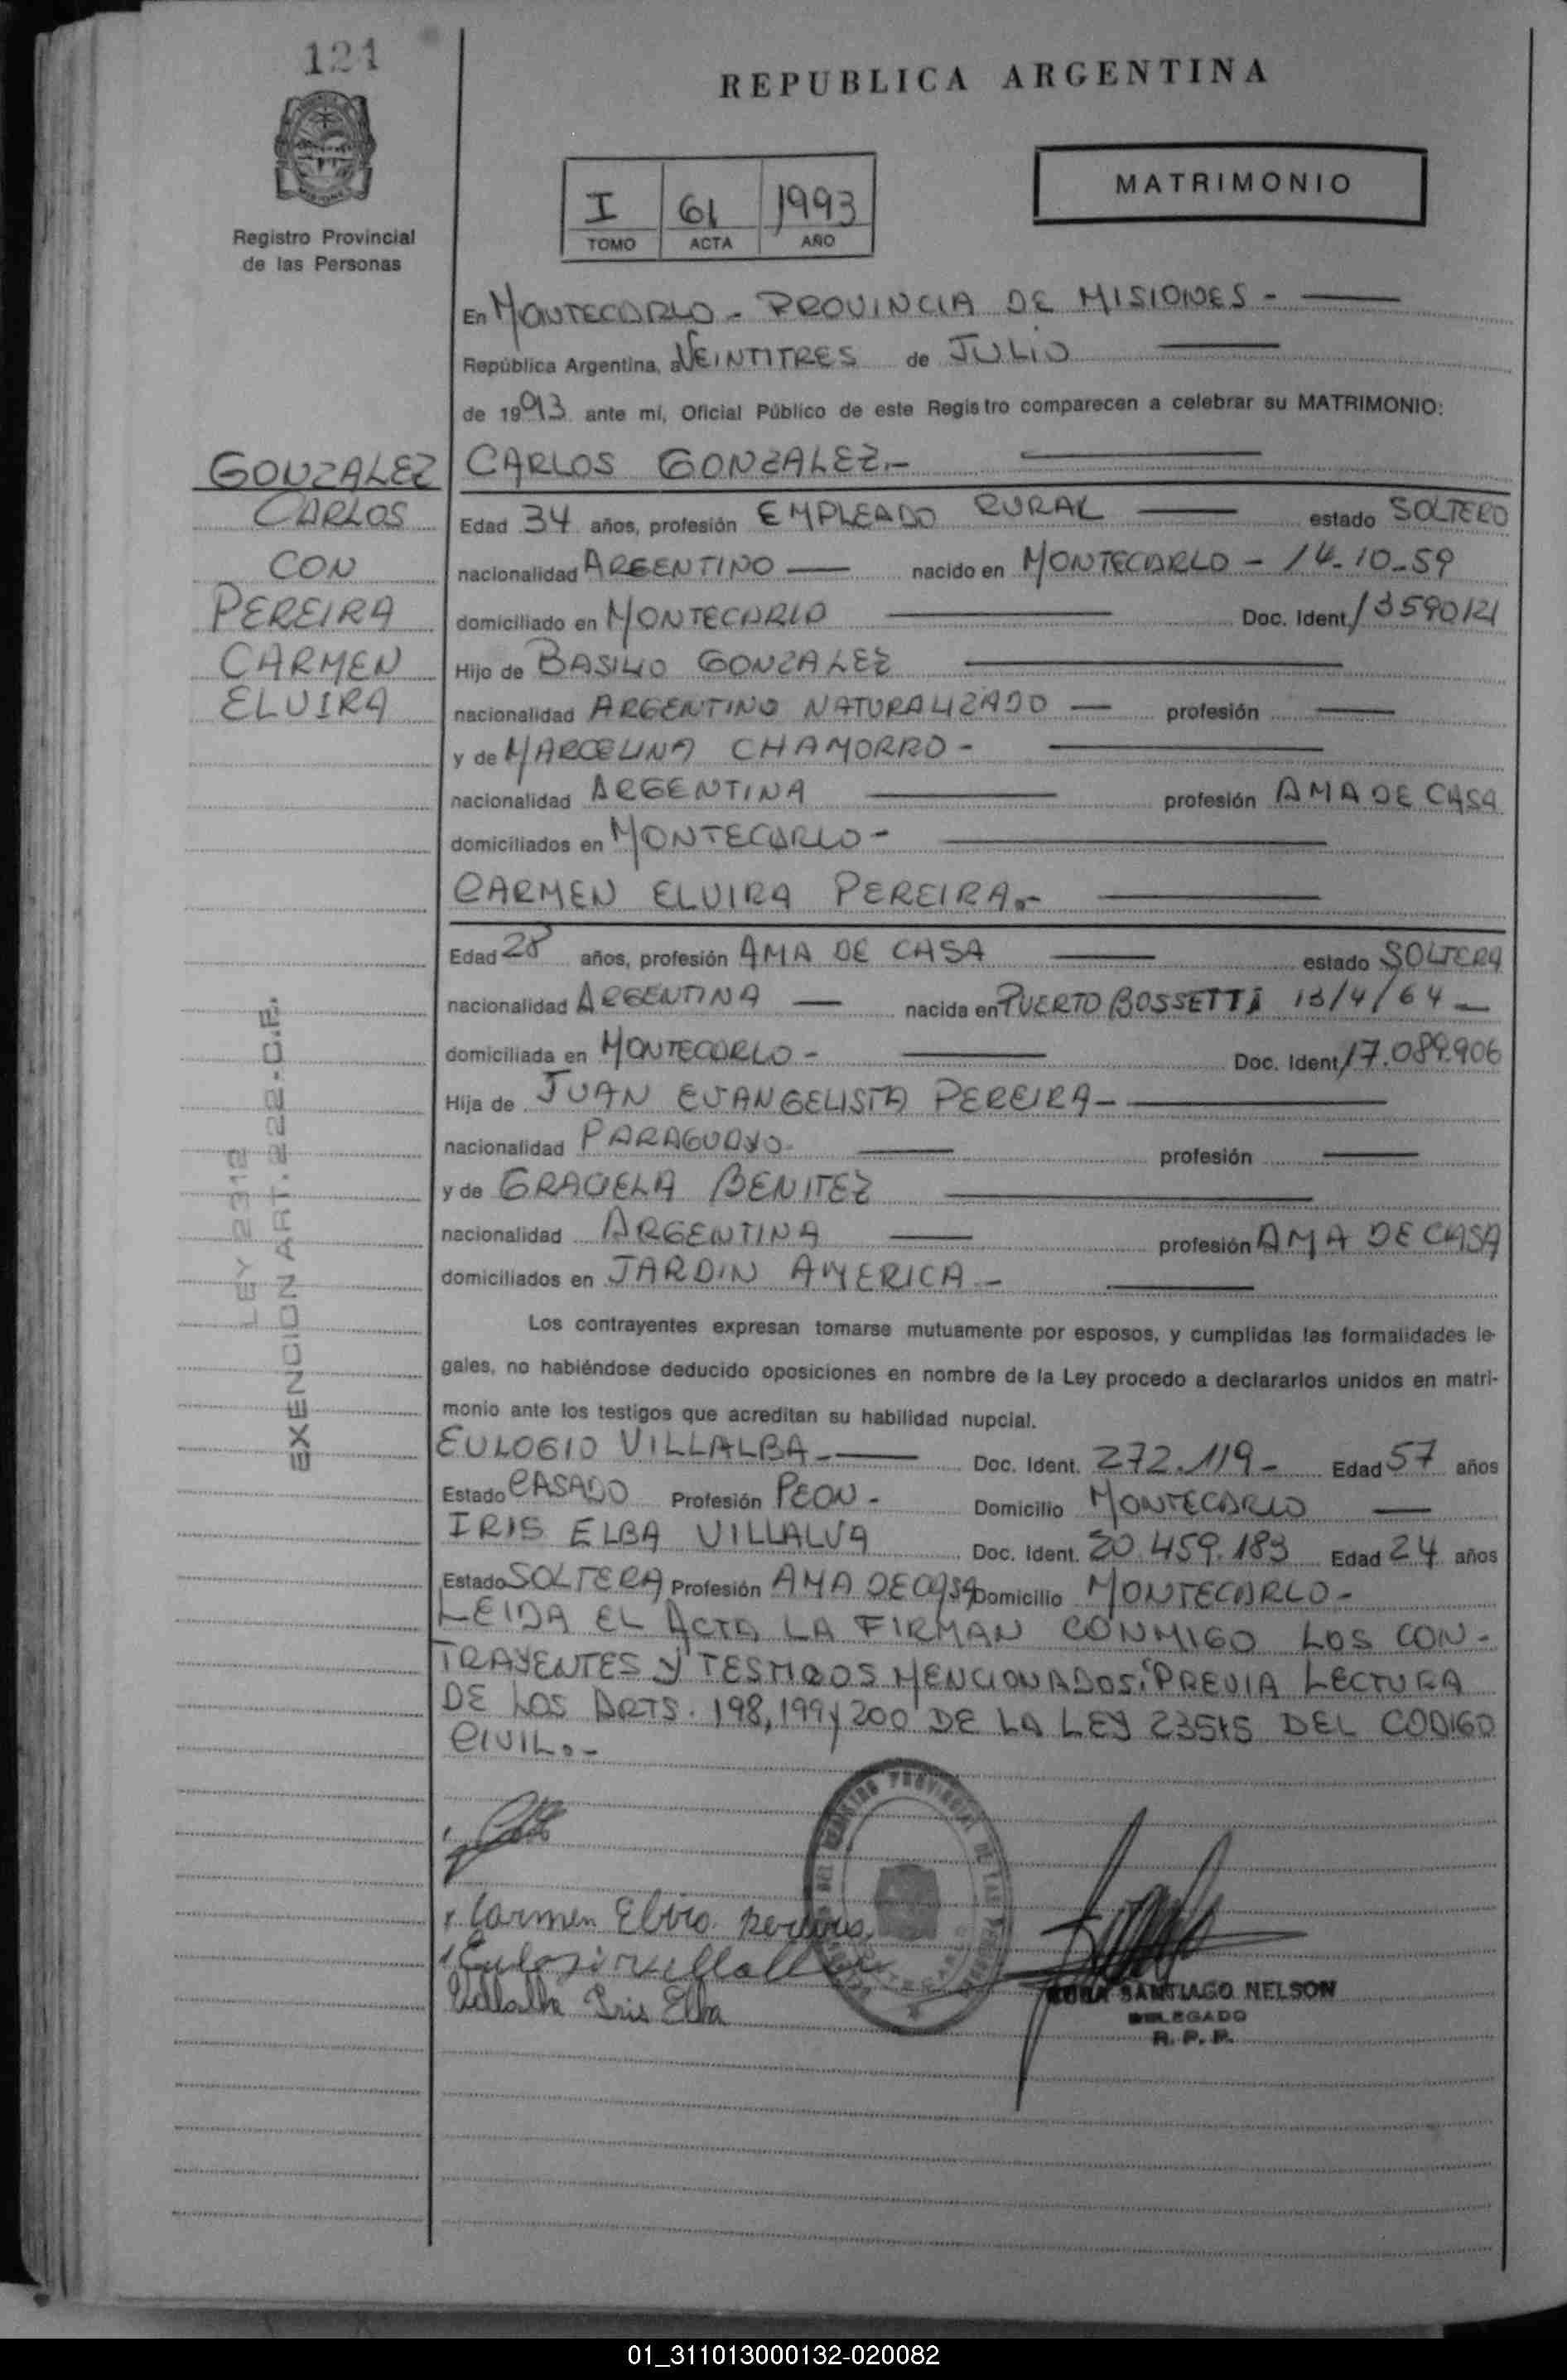 121
REPUBLICA ARGENTINA
MATRIMONIO
I 61 1993
TOMO ACTA AÑO
Registro Provincial
de las Personas
En MONTECARLO - PROVINCIA DE MISIONES -
República Argentina, a VEINTITRES de JULIO
de 1993 ante mí, Oficial Público de este Registro comparecen a celebrar su MATRIMONIO:
GONZALEZ
CARLOS
CON
PEREIRA
CARMEN
ELVIRA
CARLOS GONZALEZ.-
Edad 34 años, profesión EMPLEADO RURAL estado SOLTERO
nacionalidad ARGENTINO nacido en MONTECARLO - 14-10-59
domiciliado en MONTECARLO Doc. Ident. 13590121
Hijo de BASILIO GONZALEZ
nacionalidad ARGENTINO NATURALIZADO profesión
y de MARCELINA CHAMORRO -
nacionalidad ARGENTINA profesión AMA DE CASA
domiciliados en MONTECARLO -
CARMEN ELVIRA PEREIRA.-
Edad 28 años, profesión AMA DE CASA estado SOLTERA
nacionalidad ARGENTINA nacida en PUERTO BOSSETTI 13/4/64
domiciliada en MONTECARLO - Doc. Ident. 17.089.906
Hija de JUAN EVANGELISTA PEREIRA -
nacionalidad PARAGUAYO - profesión
y de GRACIELA BENITEZ
nacionalidad ARGENTINA profesión AMA DE CASA
domiciliados en JARDIN AMERICA -
LEY 2312
EXENCION ART. 222-C.F.
Los contrayentes expresan tomarse mutuamente por esposos, y cumplidas las formalidades le-
gales, no habiéndose deducido oposiciones en nombre de la Ley procedo a declararlos unidos en matri-
monio ante los testigos que acreditan su habilidad nupcial.
EULOGIO VILLALBA - Doc. Ident. 272.119 - Edad 57 años
Estado CASADO Profesión PEON - Domicilio MONTECARLO
IRIS ELBA VILLALVA Doc. Ident. 20.459.183 Edad 24 años
Estado SOLTERA Profesión AMA DE CASA Domicilio MONTECARLO -
LEIDA EL ACTA LA FIRMAN CONMIGO LOS CON-
TRAYENTES Y TESTIGOS MENCIONADOS, PREVIA LECTURA
DE LOS ARTS. 198, 199 y 200 DE LA LEY 23515 DEL CODIGO
CIVIL.-
Carmen Elvira
Villalba Iris Elba
SANTIAGO NELSON
DELEGADO
R. P. P.
01_311013000132-020082